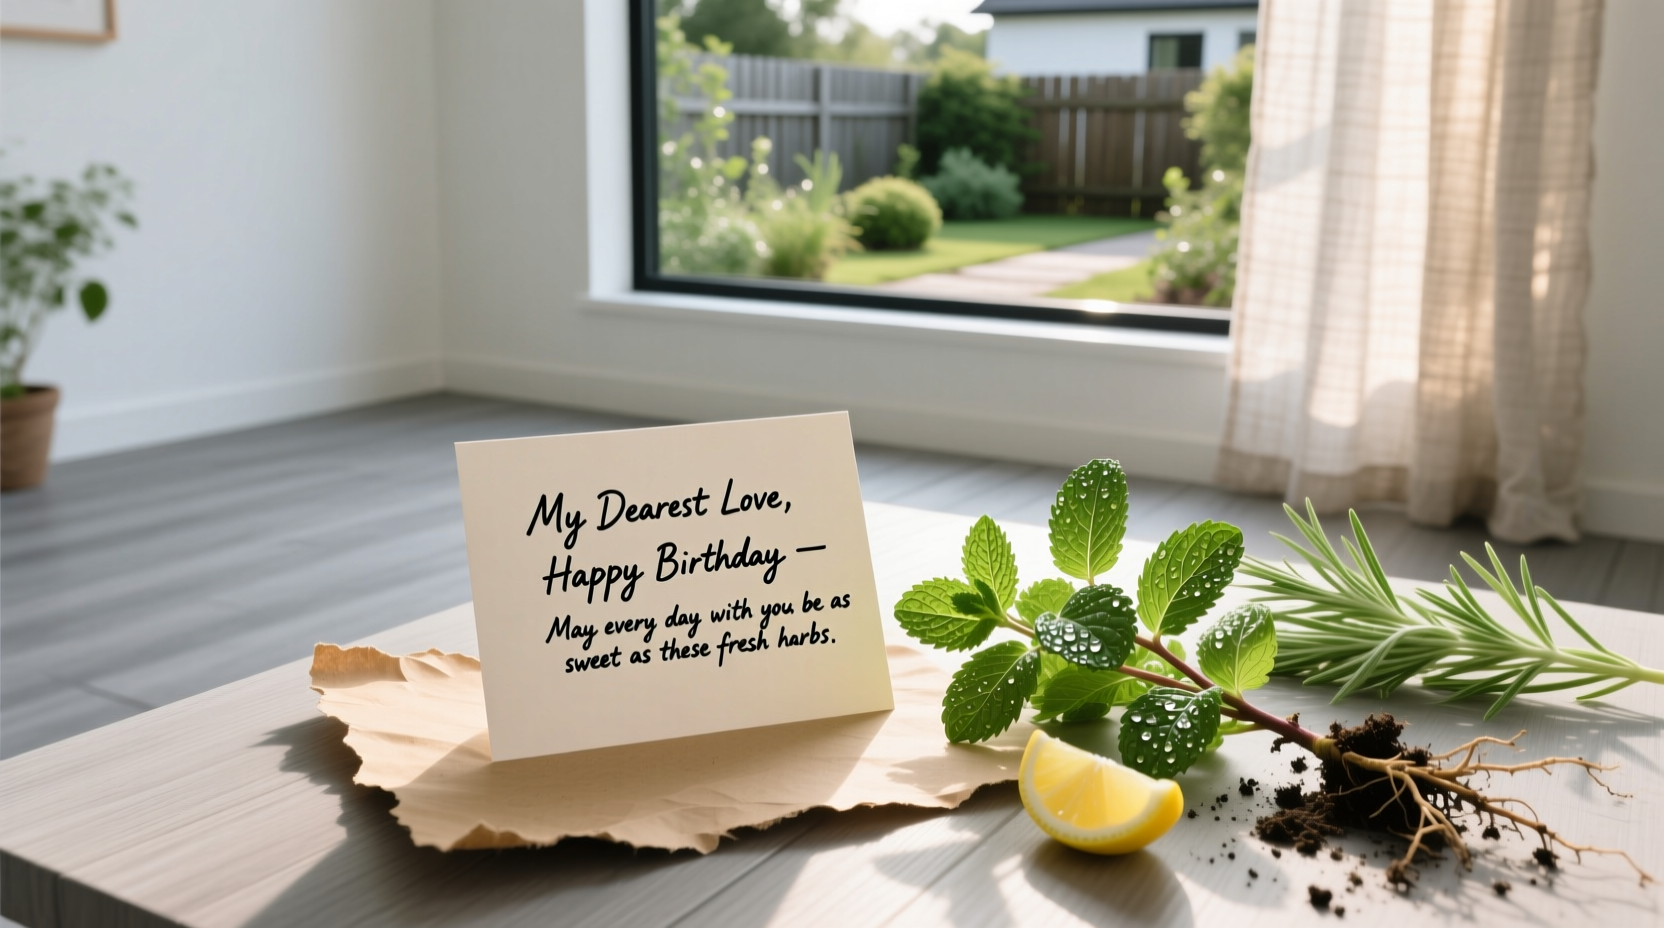 My Dearest Love,
Happy Birthday —
May every day with you be as
sweet as these fresh harbs.